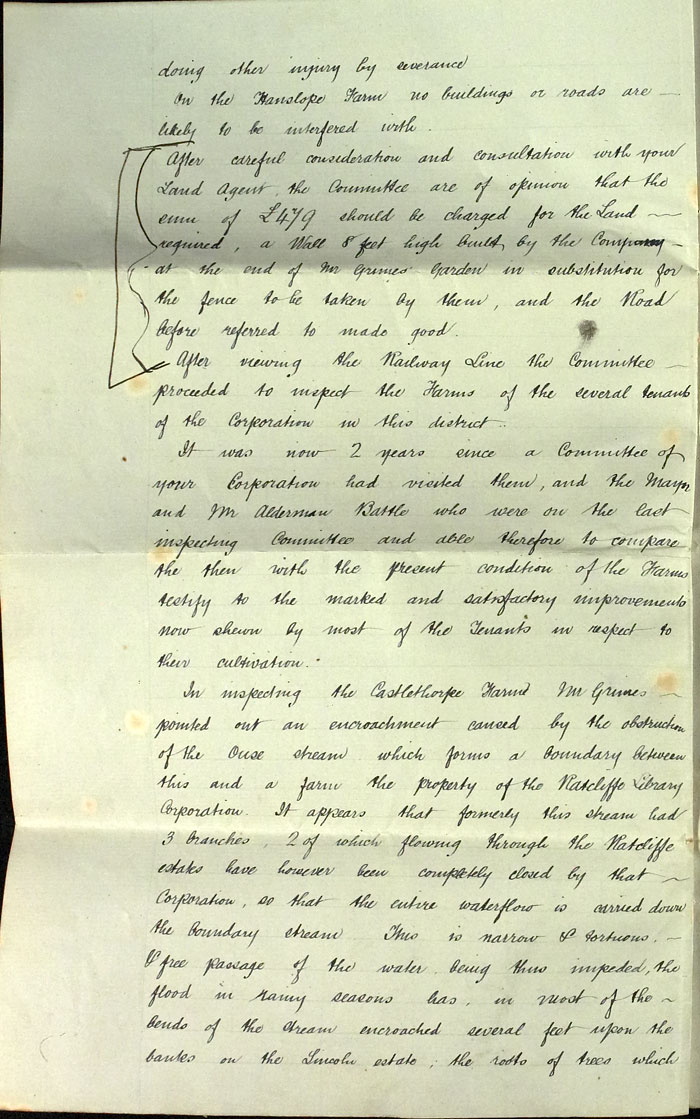 doing other injury by severance
On the Hanslope Farm no buildings or roads are —
likely to be interfered with.
After careful consideration and consultation with your
Land Agent, the Committee are of opinion that the
sum of £479 should be charged for the Land —
required, a Wall 8 feet high built by the Company —
at the end of Mr Grimes' Garden in substitution for
the fence to be taken by them, and the Road
before referred to made good.
After viewing the Railway Line the Committee —
proceeded to inspect the Farms of the several tenants
of the Corporation in this district.
It was now 2 years since a Committee of
your Corporation had visited them, and the Mayor
and Mr Alderman Battle who were on the last
inspecting Committee and able therefore to compare
the then with the present condition of the Farms
testify to the marked and satisfactory improvements
now shewn by most of the Tenants in respect to
their cultivation.
In inspecting the Castlethorpe Farm Mr Grimes —
pointed out an encroachment caused by the obstruction
of the Ouse stream which forms a boundary between
this and a farm the property of the Ratcliffe Library
Corporation. It appears that formerly this stream had
3 branches, 2 of which flowing through the Ratcliffe
estates have however been completely closed by that —
Corporation, so that the entire waterflow is carried down
the boundary stream. This is narrow & tortuous, —
& free passage of the water being thus impeded, the
flood in rainy seasons has, in most of the —
bends of the stream encroached several feet upon the
banks on the Lincoln estate; the roots of trees which